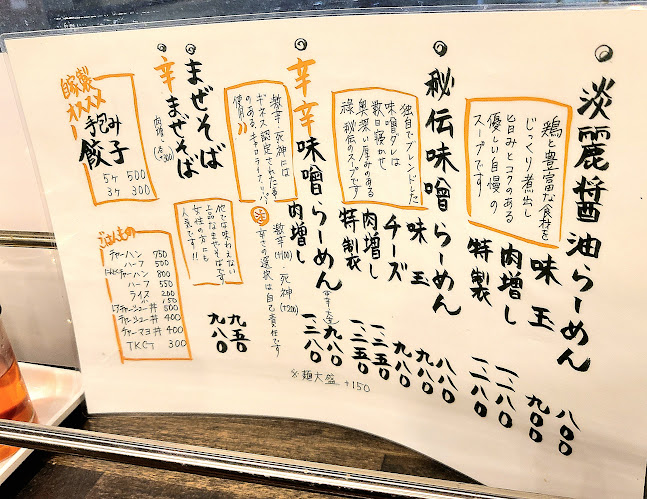 淡麗醤油らーめん 八〇〇
鶏と豊富な食材を
じっくり煮出し
旨みとコクのある
優しい自慢の
スープです。
味玉 九〇〇
肉増し 一、一八〇
特製 一、二八〇
秘伝味噌らーめん 八八〇
独自でブレンドした
味噌ダレは
数日寝かせ
奥深い厚みのある
秘伝のスープです
味玉 九八〇
チーズ 九八〇
肉増し 一、二五〇
特製 一、三五〇
辛辛味噌らーめん 九八〇
激辛・死神には
ギネスに認定された事
のあるキャロライナリーパー
使用!!
肉増し 一、三八〇
激辛(+100)・死神(+200)
辛さの選択は自己責任です
※麺大盛 +150
まぜそば 九五〇
辛まぜそば 九八〇
肉増(各+300)
他では味わえない
上品なまぜそばです。
女性の方にも
人気です!!
自家製
オススメ
手包み
餃子
5ヶ 500
3ヶ 300
ごはんもの
チャーハン 750
ハーフ 500
チャーハン 800
ハーフ 550
ライス 200
150
レアチャーシュー丼 500
チャーシュー丼 400
チャーマヨ丼 400
TKG 300